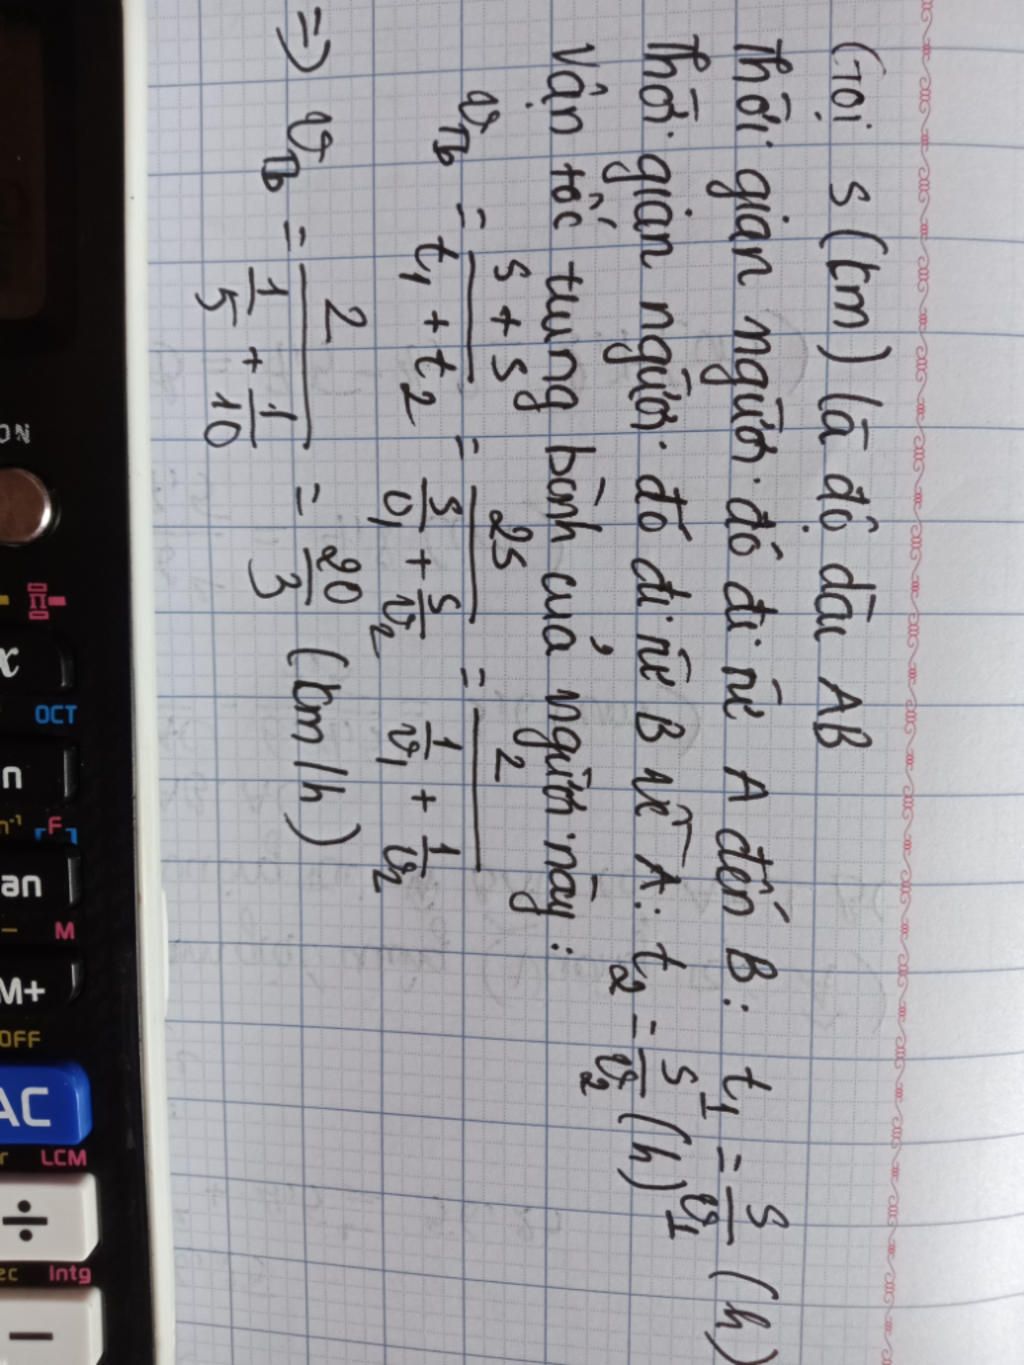 Gọi s (km) là độ dài AB
Thời gian người đó đi từ A đến B: t₁ = s/v₁ (h)
Thời gian người đó đi từ B về A: t₂ = s/v₂ (h)
Vận tốc trung bình của người này:
v_Tb = (s + s)/(t₁ + t₂) = 2s/(s/v₁ + s/v₂) = 2/(1/v₁ + 1/v₂)
=> v_Tb = 2/(1/5 + 1/10) = 20/3 (km/h)
ON
x
OCT
n
an
M
M+
OFF
AC
LCM
÷
Intg
−